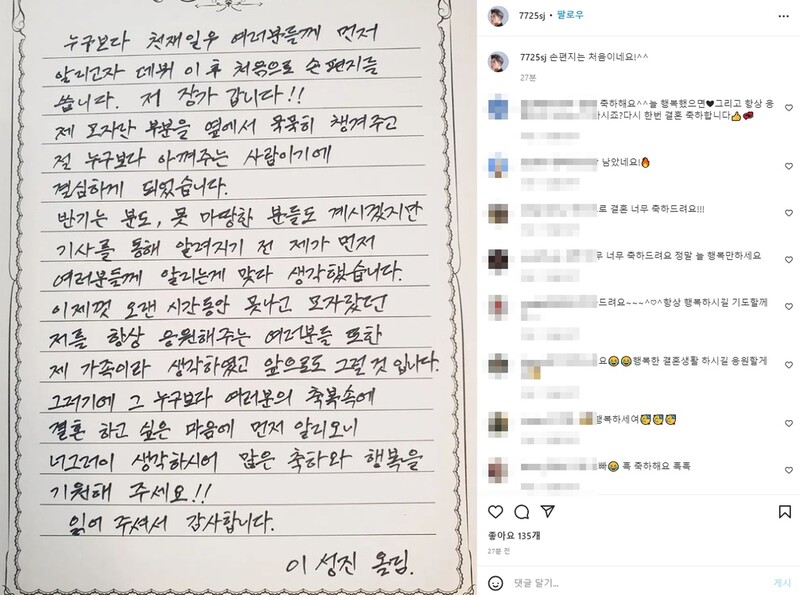 누구보다 천재일우 여러분들께 먼저
알리고자 데뷔 이후 처음으로 손 편지를
씁니다. 저 장가 갑니다!!
제 모자란 부분을 옆에서 묵묵히 챙겨주고
절 누구보다 아껴주는 사람이기에
결심하게 되었습니다.
반기는 분도, 못 마땅한 분들도 계시겠지만
기사를 통해 알려지기 전 제가 먼저
여러분들께 알리는게 맞다 생각했습니다.
이제껏 오랜 시간동안 못나고 모자랐던
저를 항상 응원해주는 여러분들 또한
제 가족이라 생각하였고 앞으로도 그럴 것 입니다.
그러기에 그 누구보다 여러분의 축복속에
결혼 하고 싶은 마음에 먼저 알리오니
너그러이 생각하시어 많은 축하와 행복을
기원해 주세요!!
읽어 주셔서 감사합니다.
이 성진 올림.
7725sj • 팔로우
7725sj 손편지는 처음이네요!^^
27분
축하해요^^늘 행복했으면❤그리고 항상 응
시죠?다시 한번 결혼 축하합니다👍
남았네요!🔥
로 결혼 너무 축하드려요!!!
너무 축하드려요 정말 늘 행복만하세요
드려요~~~^♡^항상 행복하시길 기도할께
요😂😂행복한 결혼생활 하시길 응원할게
행복하세여
빠😂 흑 축하해요 흑흑
좋아요 135개
27분 전
댓글 달기...
게시